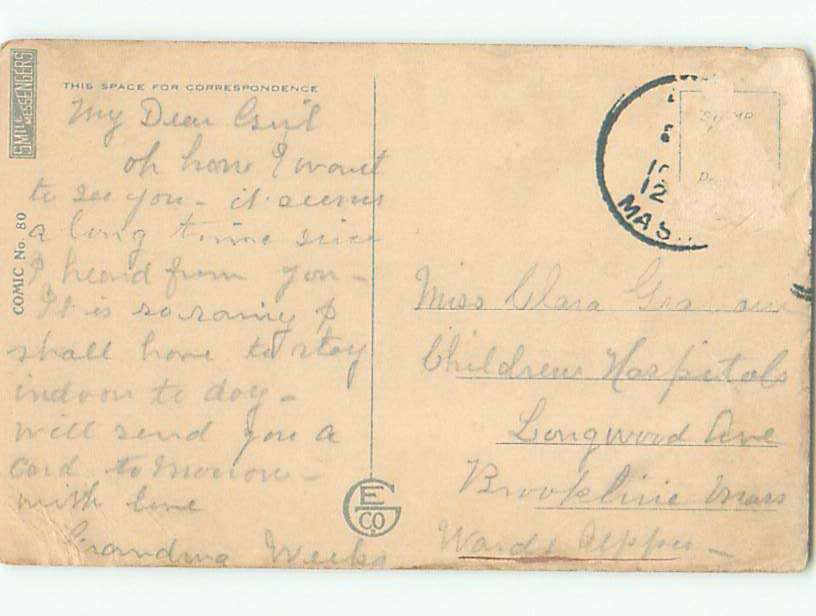 SMILE MESSENGERS
COMIC No. 80
THIS SPACE FOR CORRESPONDENCE
My Dear Girl
oh how I want
to see you - it seems
a long time since
I heard from you -
It is so rainy I
shall have to stay
indoor to day -
will send you a
card tomorrow -
with love
Grandma Weeks
E G CO.
12
MASS
Miss Clara
Childrens Hospital
Longwood Ave
Brookline Mass
Ward Upper -